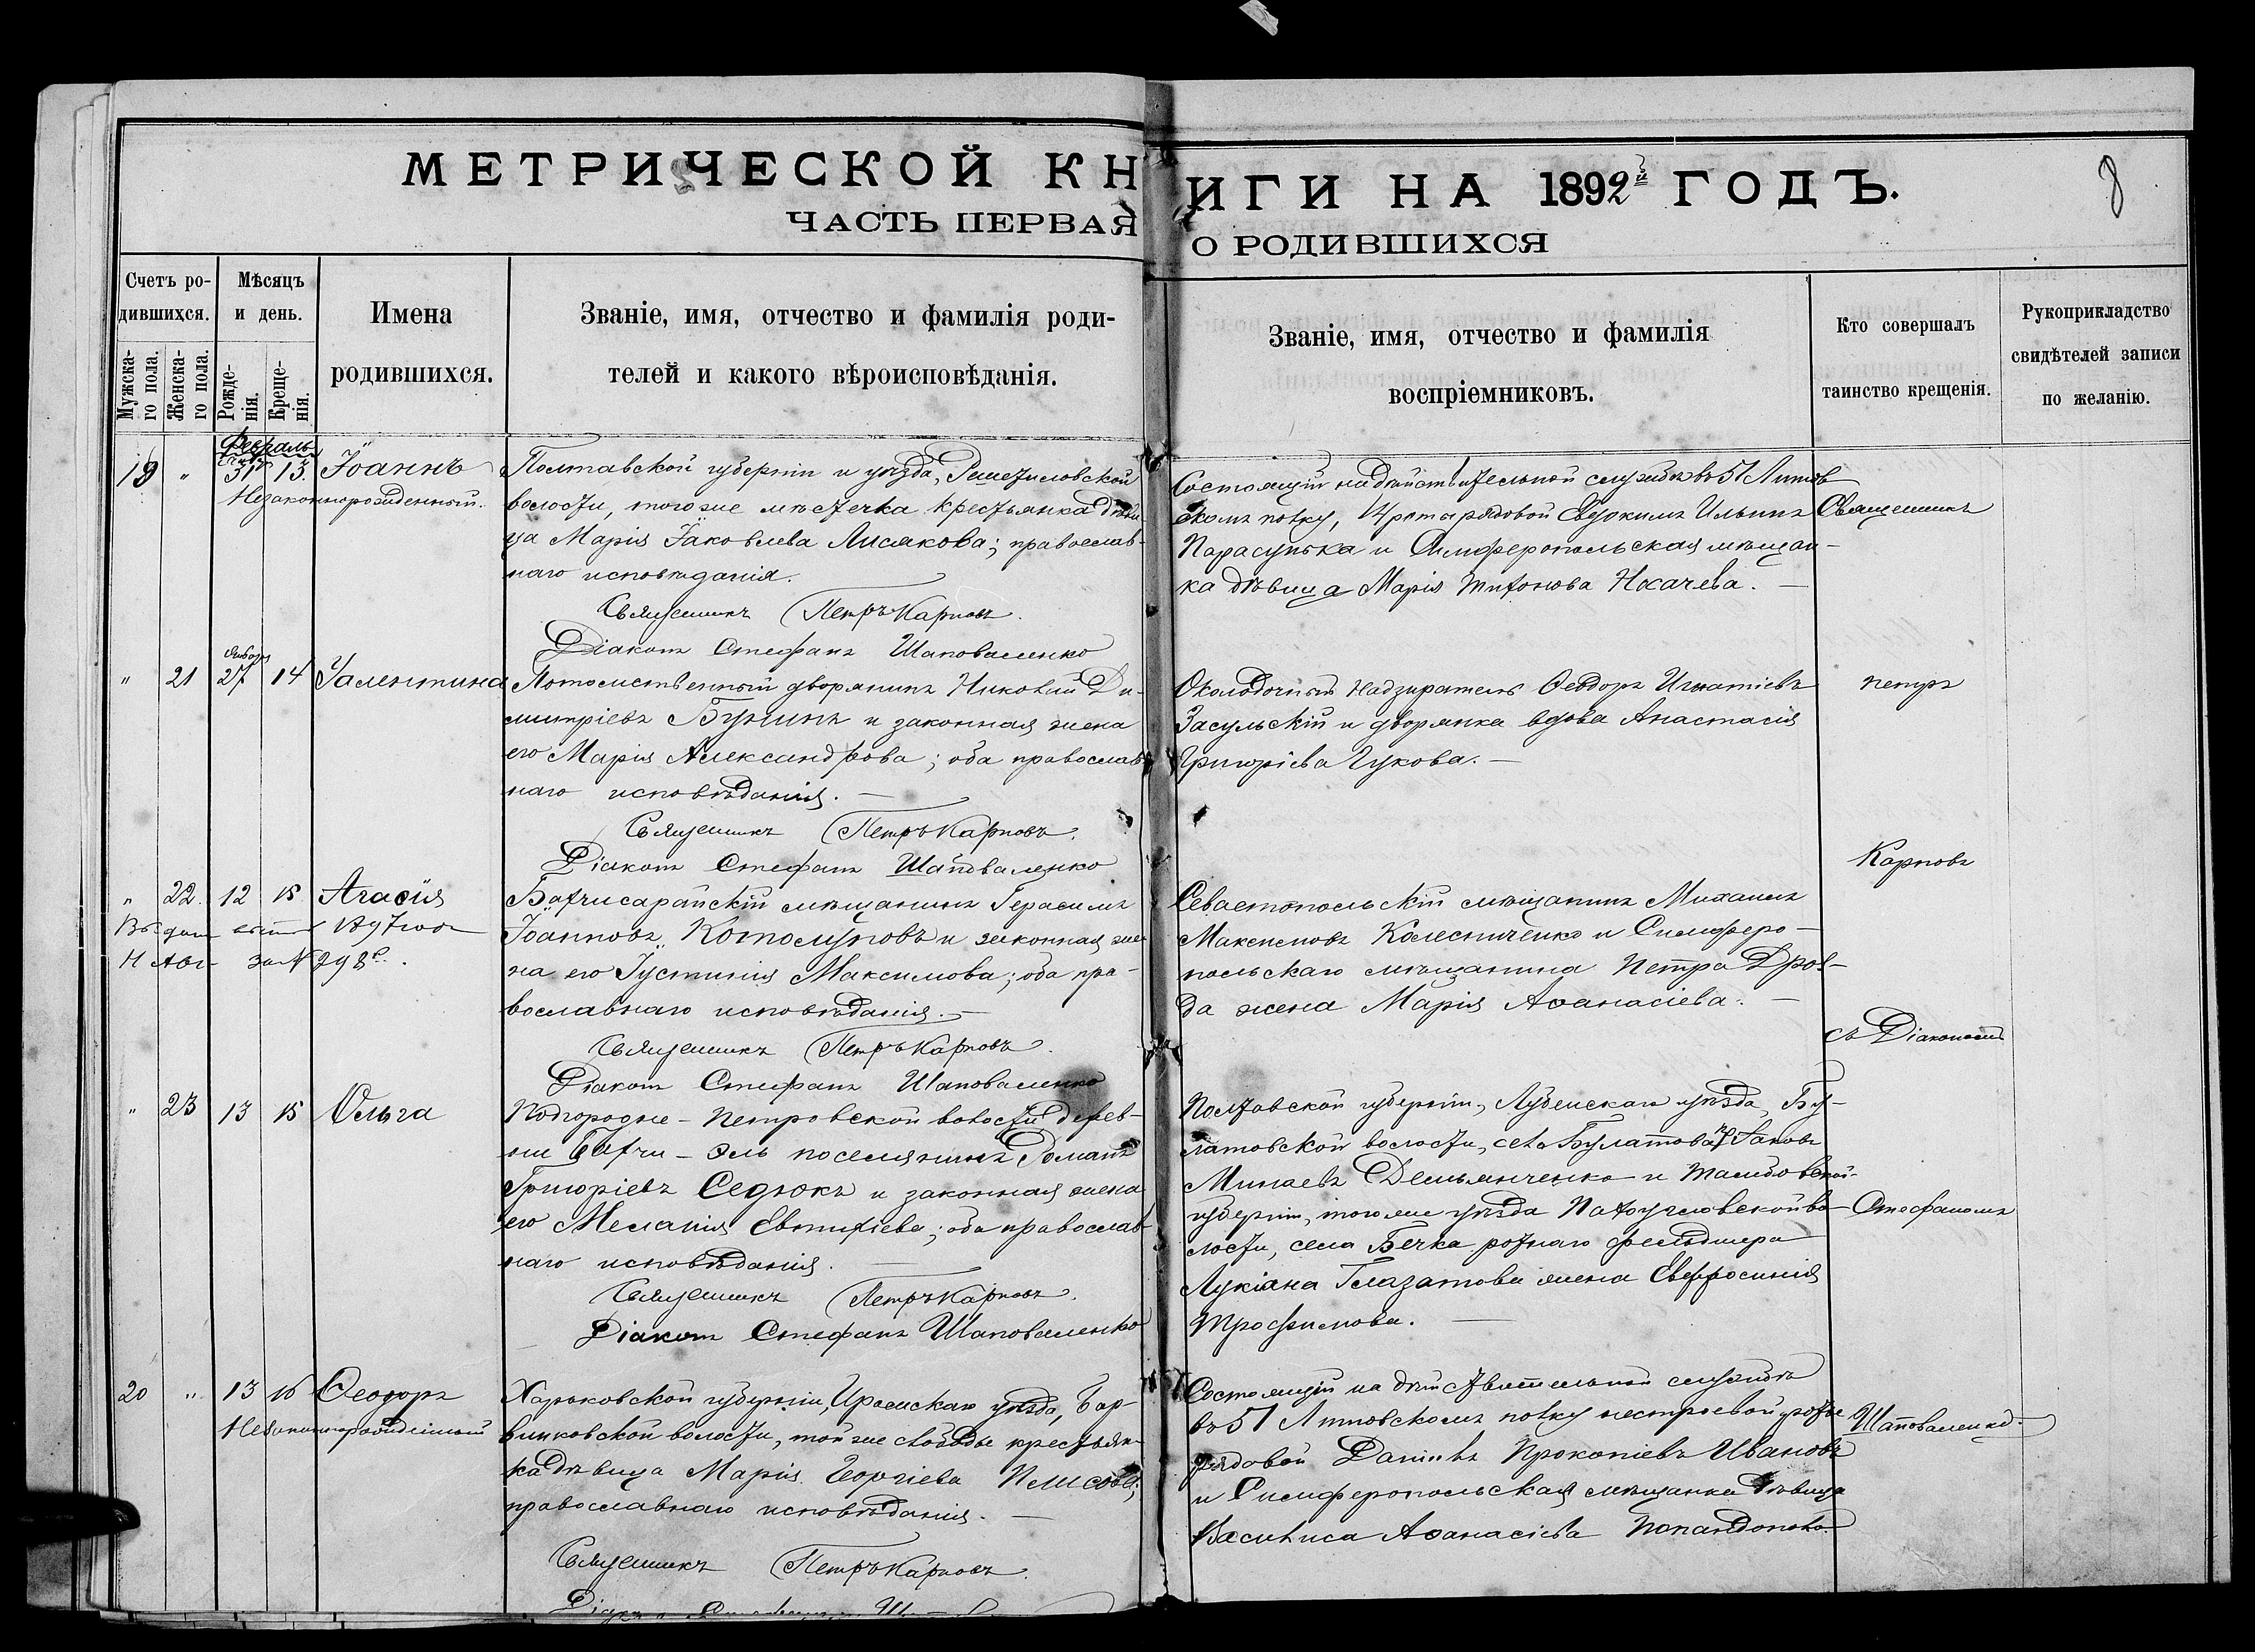 МЕТРИЧЕСКОЙ КНИГИ НА 1892й ГОДЪ.
8
ЧАСТЬ ПЕРВАЯ О РОДИВШИХСЯ
Счетъ родившихся.
Мужскаго пола.
Женскаго пола.
Мѣсяцъ и день.
Рожденія.
Крещенія.
Имена
родившихся.
Званіе, имя, отчество и фамилія роди-
телей и какого вѣроисповѣданія.
Званіе, имя, отчество и фамилія
воспріемниковъ.
Кто совершалъ
таинство крещенія.
Рукоприкладство
свидѣтелей записи
по желанію.
Февраль
19 " 31 13. Іоаннъ
Незаконнорожденный.
Полтавской губерніи и уѣзда, Решетиловской
волости, того же мѣстечка крестьянка дѣви-
ца Марія Іаковлева Лисакова; православ-
наго исповѣданія.
Священникъ Петръ Карповъ.
Діаконъ Стефанъ Шаповаленко
Состоящій на дѣйствительной службѣ въ 51 Литов-
скомъ полку, рядовой Евдокимъ Ильинъ
Парасунька и Симферопольская мѣщан-
ка дѣвица Марія Тихонова Носачева. —
Священникъ
Января
" 21 27 14 Валентина
Потомственный дворянинъ Николай Ди-
митріевъ Бунинъ и законная жена
его Марія Александрова; оба православ-
наго исповѣданія. —
Священникъ Петръ Карповъ.
Діаконъ Стефанъ Шаповаленко
Околодочный Надзиратель Ѳеодоръ Игнатіевъ
Засульскій и дворянка вдова Анастасія
Григоріева Гукова. —
Петръ
Карповъ
" 22. 12 15 Агаѳія
1897 года
за № 298
Бахчисарайскій мѣщанинъ Герасимъ
Іоанновъ и законная же-
на его Іустинія Максимова; оба пра-
вославнаго исповѣданія. —
Священникъ Петръ Карповъ.
Діаконъ Стефанъ Шаповаленко
Севастопольскій мѣщанинъ Михаилъ
Максимовъ Колесниченко и Симферо-
польскаго мѣщанина Петра Дроз-
да жена Марія Аѳанасіева. —
съ Діакономъ
" 23 13 15 Ольга
Подгородне-Петровской волости дерев-
ни Бахчи-Эль поселянинъ Романъ
Григоріевъ Седюкъ и законная жена
его Меланія Евтихіева; оба православ-
наго исповѣданія. —
Священникъ Петръ Карповъ.
Діаконъ Стефанъ Шаповаленко
Полтавской губерніи, Лубенскаго уѣзда, Бу-
латовской волости, села Іаковъ
Минаевъ Демьянченко и Тамбовской
губерніи, того же уѣзда во-
лости, села ротнаго фельдшера
Лукіана Глазатова жена Евфросинія
Трофимова. —
Стефаномъ
20 " 13 16 Ѳеодоръ
Незаконнорожденный
Харьковской губерніи, Изюмскаго уѣзда, Бар-
винковской волости, той же слободы крестьян-
ка дѣвица Марія Георгіева
православнаго исповѣданія. —
Священникъ Петръ Карповъ.
Состоящій на дѣйствительной службѣ
въ 51 Литовскомъ полку нестроевой роты
рядовой Даніилъ Прокопіевъ Ивановъ
и Симферопольская мѣщанка дѣвица
Василиса Аѳанасіева Попандопуло
Шаповаленко.